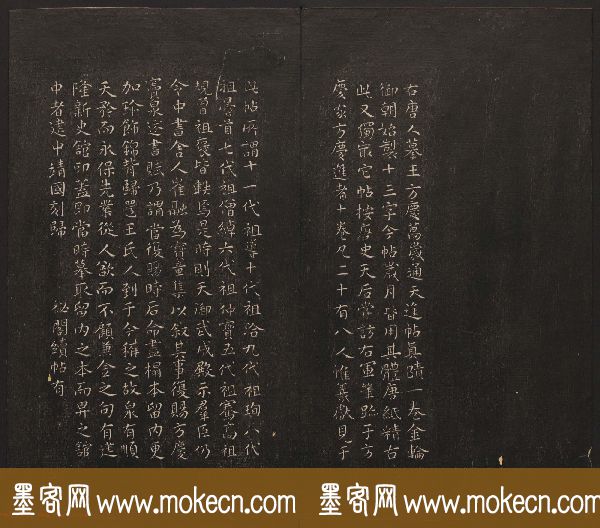 右唐人摹王方慶萬歲通天進帖真蹟一卷金輪
御朝始製十三字今帖歲月皆用其體唐紙精古
此又獨最它帖按唐史天后嘗訪右軍筆跡于方
慶家方慶進者十卷凡二十有八人惟羲獻見于
此帖所謂十一代祖導十代祖洽九代祖珣八代
祖曇首七代祖僧綽六代祖仲寶五代祖騫高祖
規曾祖褒皆軼焉是時則天御武成殿示羣臣仍
令中書舍人崔融為寶章集以叙其事復賜方慶
竇泉述書賦乃謂當復賜時后命盡榻本留內更
加珍飾錦背歸還王氏人到于今稱之故泉有順
天矜而永保先業從人欲而不顧兼金之句有建
隆新史館印蓋即當時摹取留內之本而昇之館
中者建中靖國刻歸 祕閣續帖有
墨客网 www.mokecn.com
墨客网 www.mokecn.com